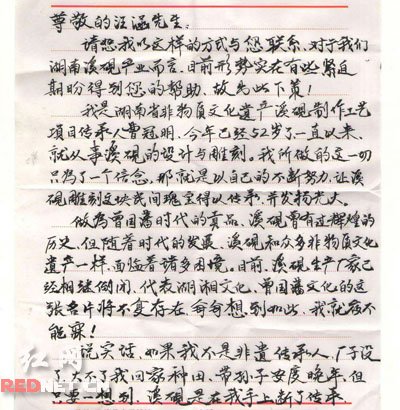 尊敬的汪涵先生:
请恕我以这样的方式与您联系、对于我们
湖南溪砚产业而言、目前形势实在有些紧迫
期盼得到您的帮助、故先此下策!
我是湖南省非物质文化遗产溪砚制作工艺
项目传承人曹冠明,今年已经52岁了一直以来、
就从事溪砚的设计与雕刻。我所做的这一切
只为了一个信念,那就是以自己的不断努力、让溪
砚雕刻这块民间瑰宝得以传承、开发扬光大。
做为曾国藩时代的贡品、溪砚曾有过辉煌的
历史、但随着时代的发展、溪砚和众多非物质文化
遗产一样,面临着诸多困境。目前、溪砚生产厂家已
经相继倒闭、代表湖湘文化、曾国藩文化的这
张名片将不复存在、每每想到如此、我就夜不
能寐!
说实话、如果我不是非遗传承人、厂子没
了大不了我回家种田、带孙子安度晚年、但
只要一想到、溪砚是在我手上断了传承
红网
REDNET.CN